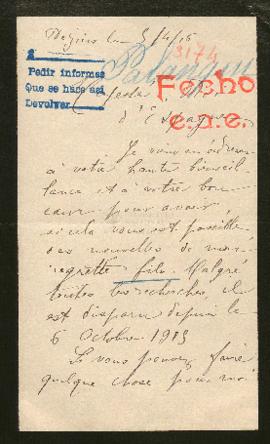 5/4/16
3174
A
Pedir informes
Que se hace así
Devolver
Fecho
e.a.e.
d'Espagne
Je viens m'adresser
à votre haute bienveil
lance et à votre bon
cœur pour avoir
si cela vous est possible
des nouvelles de mon
regretté fils. Malgré
toutes les recherches, il
est disparu depuis le
6 Octobre 1915
Si vous pouvez faire
quelque chose pour moi